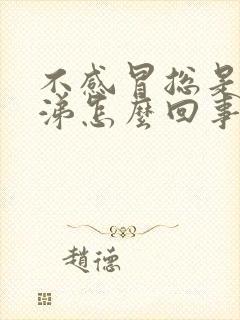 不感冒総是
涕怎麼回事
趙德